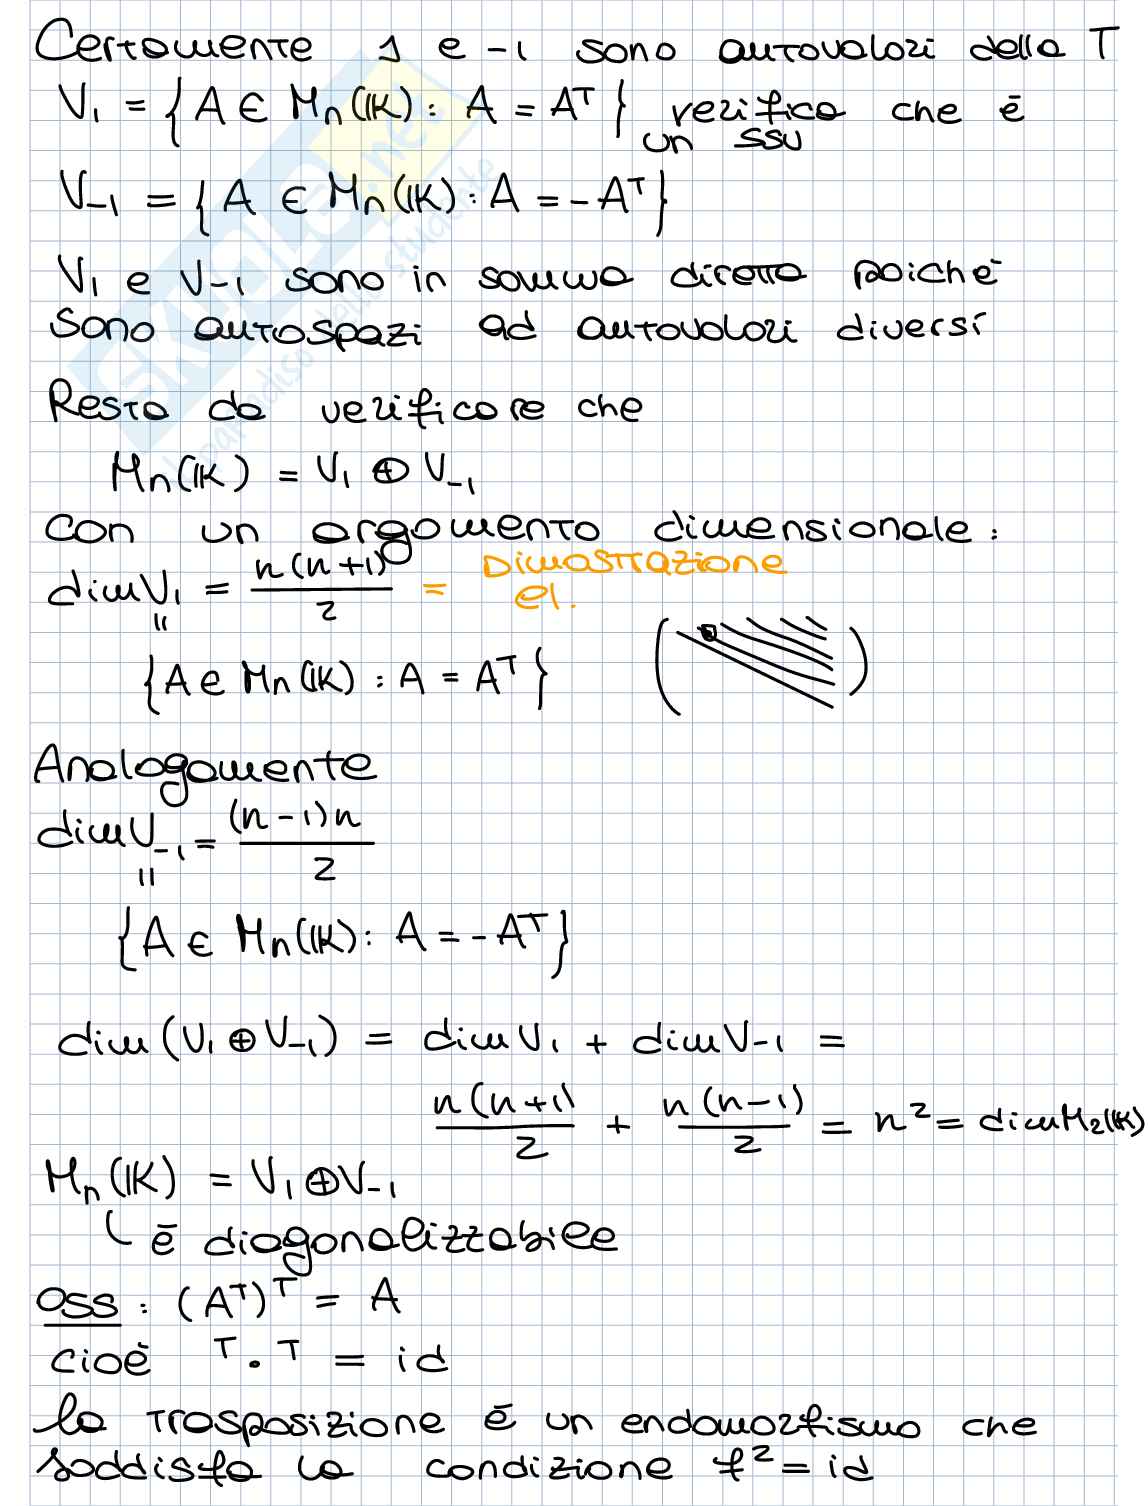 Certamente 1 e -1 sono autovalori della T
V₁ = { A ∈ Mn(IK) : A = Aᵀ } verifica che è
un SSV
V₋₁ = { A ∈ Mn(IK) : A = -Aᵀ }
V₁ e V₋₁ sono in somma diretta poichè
sono autospazi ad autovalori diversi
Resta da verificare che
Mn(IK) = V₁ ⊕ V₋₁
Con un argomento dimensionale :
dim V₁ = n(n+1)/2 = Dimostrazione
el.
=
{ A ∈ Mn(IK) : A = Aᵀ }
Analogamente
dim V₋₁ = (n-1)n/2
=
{ A ∈ Mn(IK) : A = -Aᵀ }
dim (V₁ ⊕ V₋₁) = dim V₁ + dim V₋₁ =
n(n+1)/2 + n(n-1)/2 = n² = dim M₂(IK)
Mn(IK) = V₁ ⊕ V₋₁
è diagonalizzabile
OSS : (Aᵀ)ᵀ = A
cioè T · T = id
la trasposizione è un endomorfismo che
soddisfa la condizione f² = id
skuola.net
il paradiso dello studente